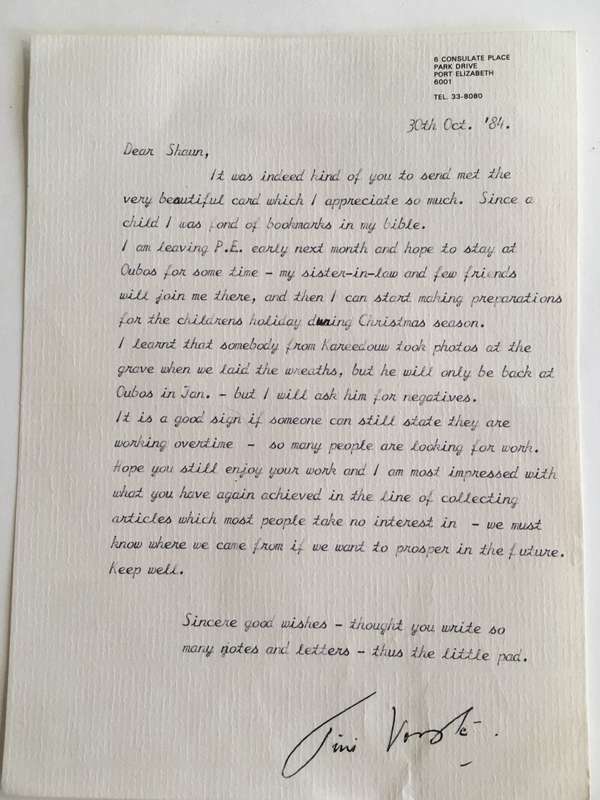 6 CONSULATE PLACE
PARK DRIVE
PORT ELIZABETH
6001
TEL. 33-8080
30th Oct. '84.
Dear Shaun,
It was indeed kind of you to send met the
very beautiful card which I appreciate so much. Since a
child I was fond of bookmarks in my bible.
I am leaving P.E. early next month and hope to stay at
Oubos for some time - my sister-in-law and few friends
will join me there, and then I can start making preparations
for the childrens holiday during Christmas season.
I learnt that somebody from Kareedouw took photos at the
grave when we laid the wreaths, but he will only be back at
Oubos in Jan. - but I will ask him for negatives.
It is a good sign if someone can still state they are
working overtime - so many people are looking for work.
Hope you still enjoy your work and I am most impressed with
what you have again achieved in the line of collecting
articles which most people take no interest in - we must
know where we came from if we want to prosper in the future.
Keep well.
Sincere good wishes - thought you write so
many notes and letters - thus the little pad.
Tini Vorster.